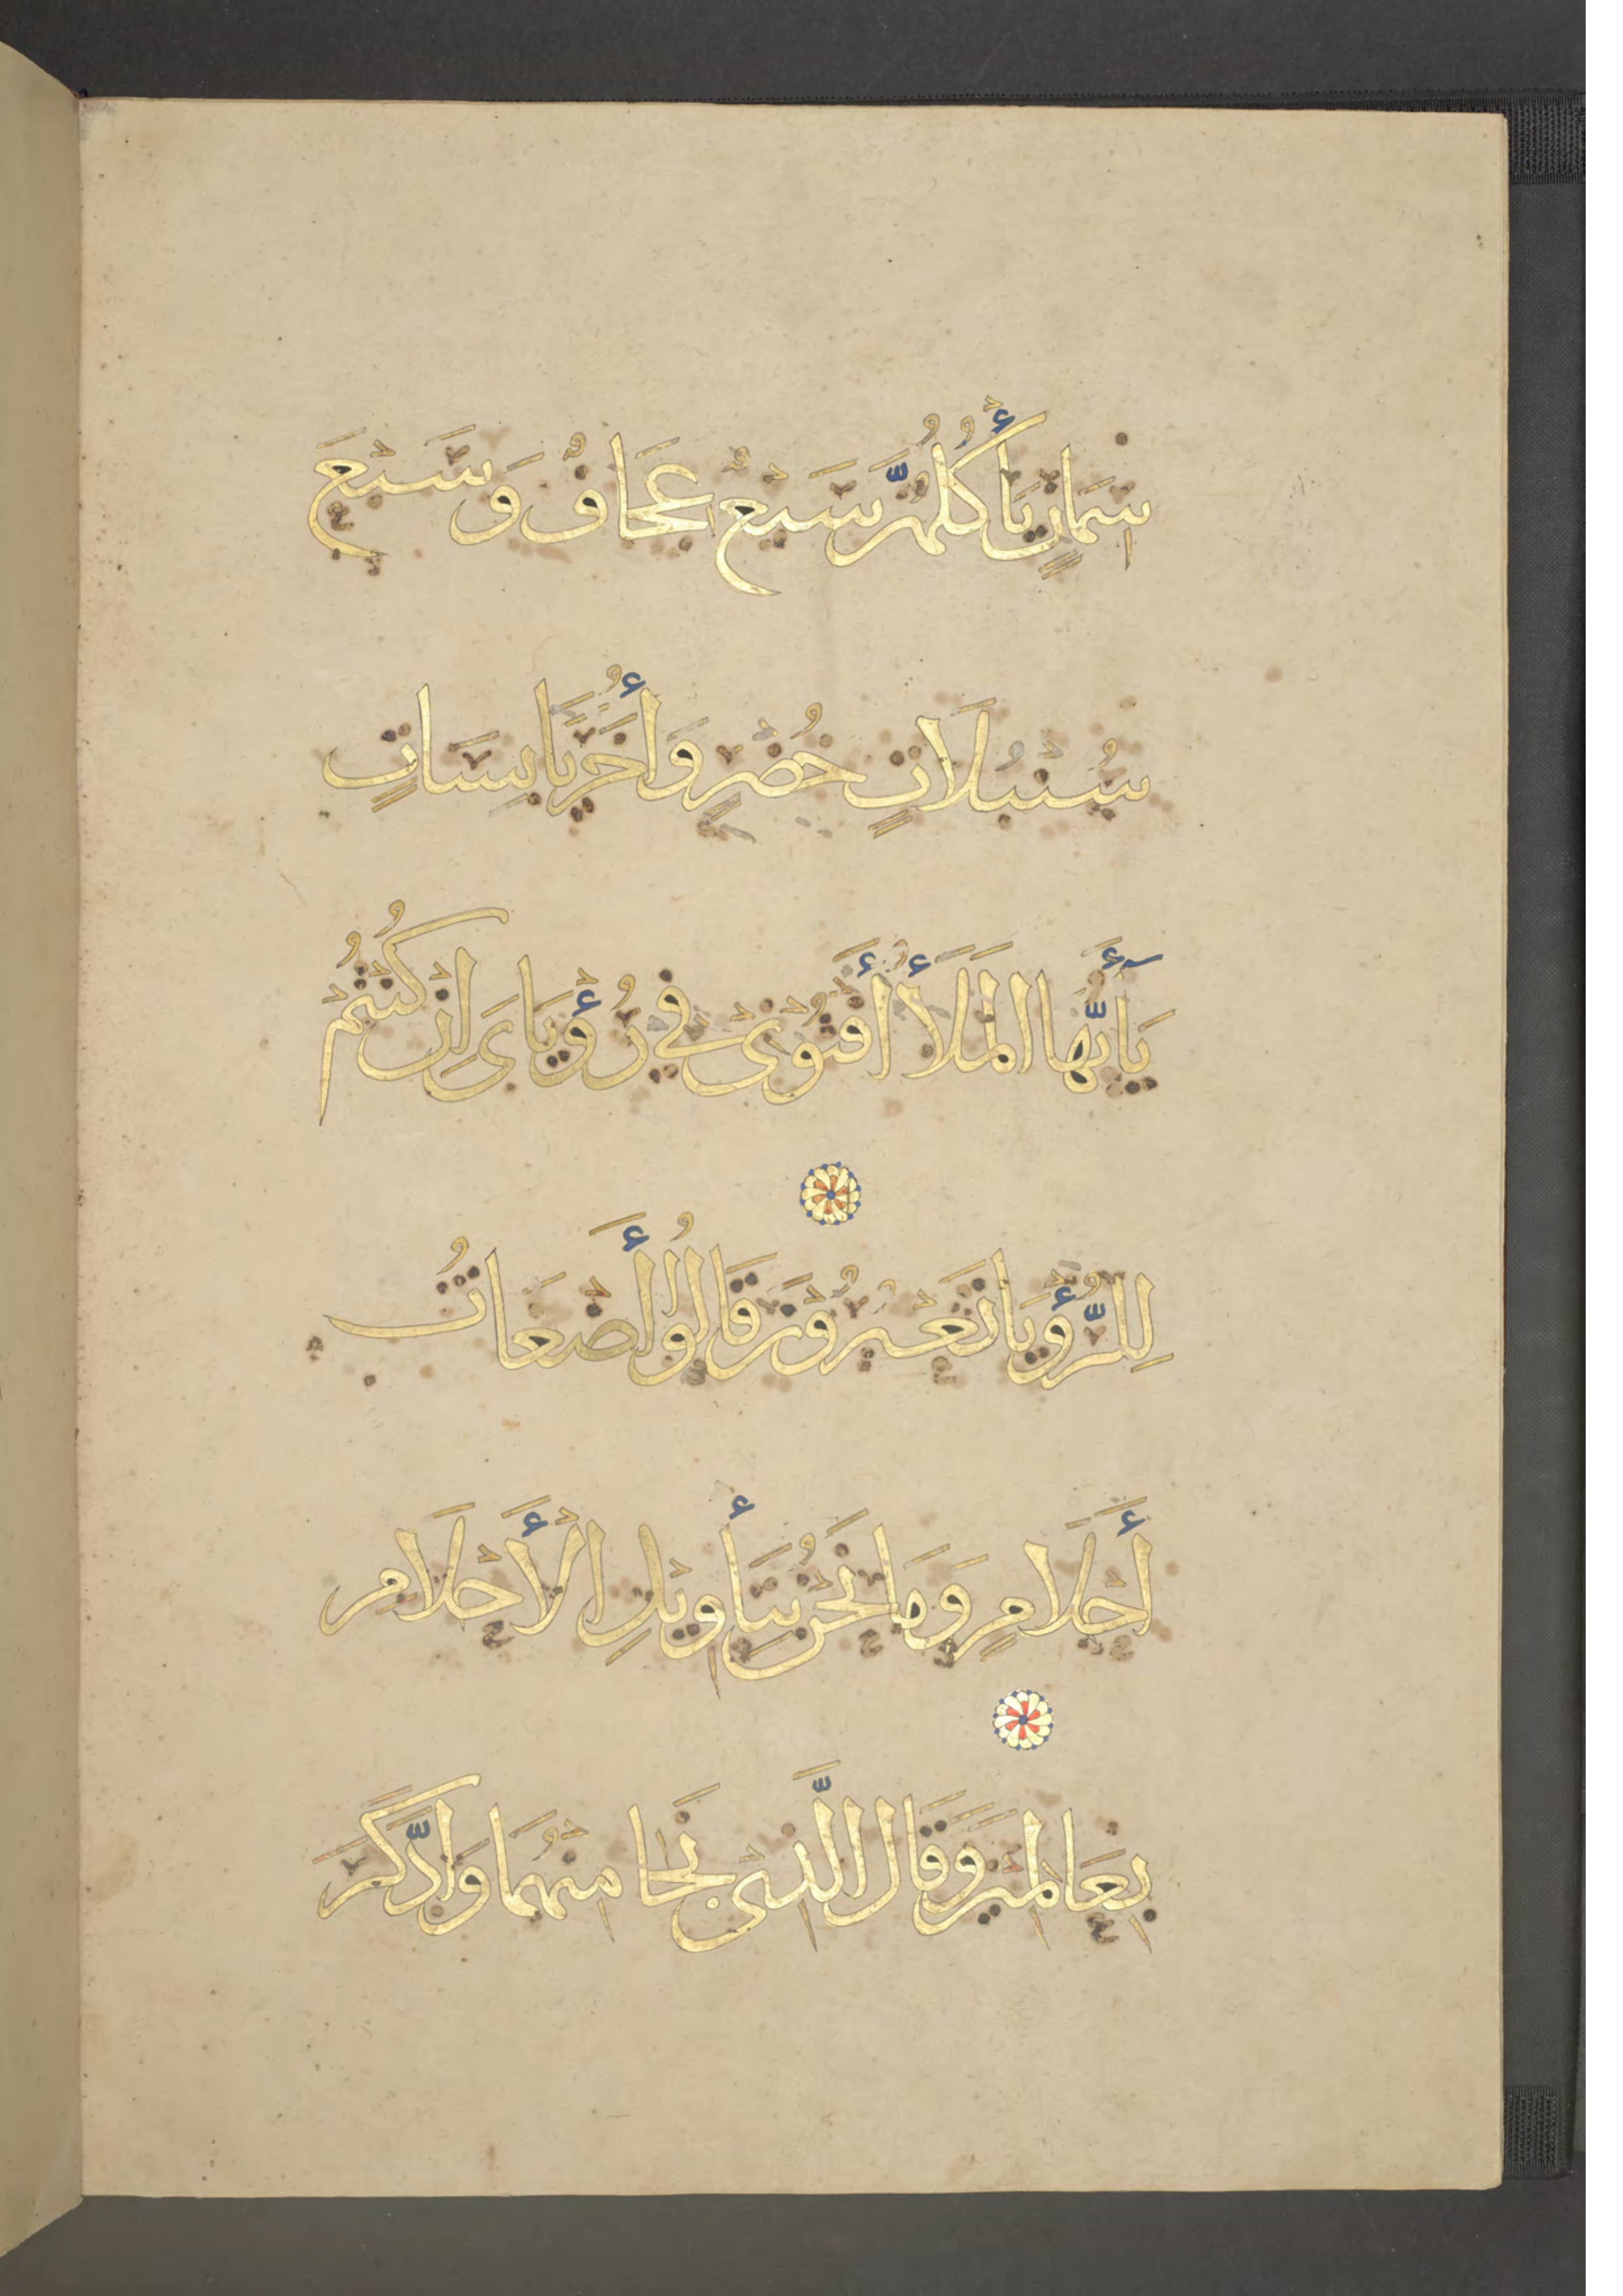 سِمَانٍ يَأْكُلُهُنَّ سَبْعٌ عِجَافٌ وَسَبْعَ
سُنْبُلَاتٍ خُضْرٍ وَأُخَرَ يَابِسَاتٍ
يَا أَيُّهَا الْمَلَأُ أَفْتُوْنِىْ فِى رُؤْيَاىَ اِنْ كُنْتُمْ
لِلرُّؤْيَا تَعْبُرُوْنَ قَالُوا أَضْغَاثُ
أَحْلَامٍ وَمَا نَحْنُ بِتَأْوِيْلِ الْأَحْلَامِ
بِعَالِمِيْنَ وَقَالَ الَّذِىْ نَجَا مِنْهُمَا وَادَّكَرَ